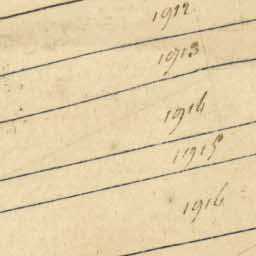 1912
1913
1914
1915
1916